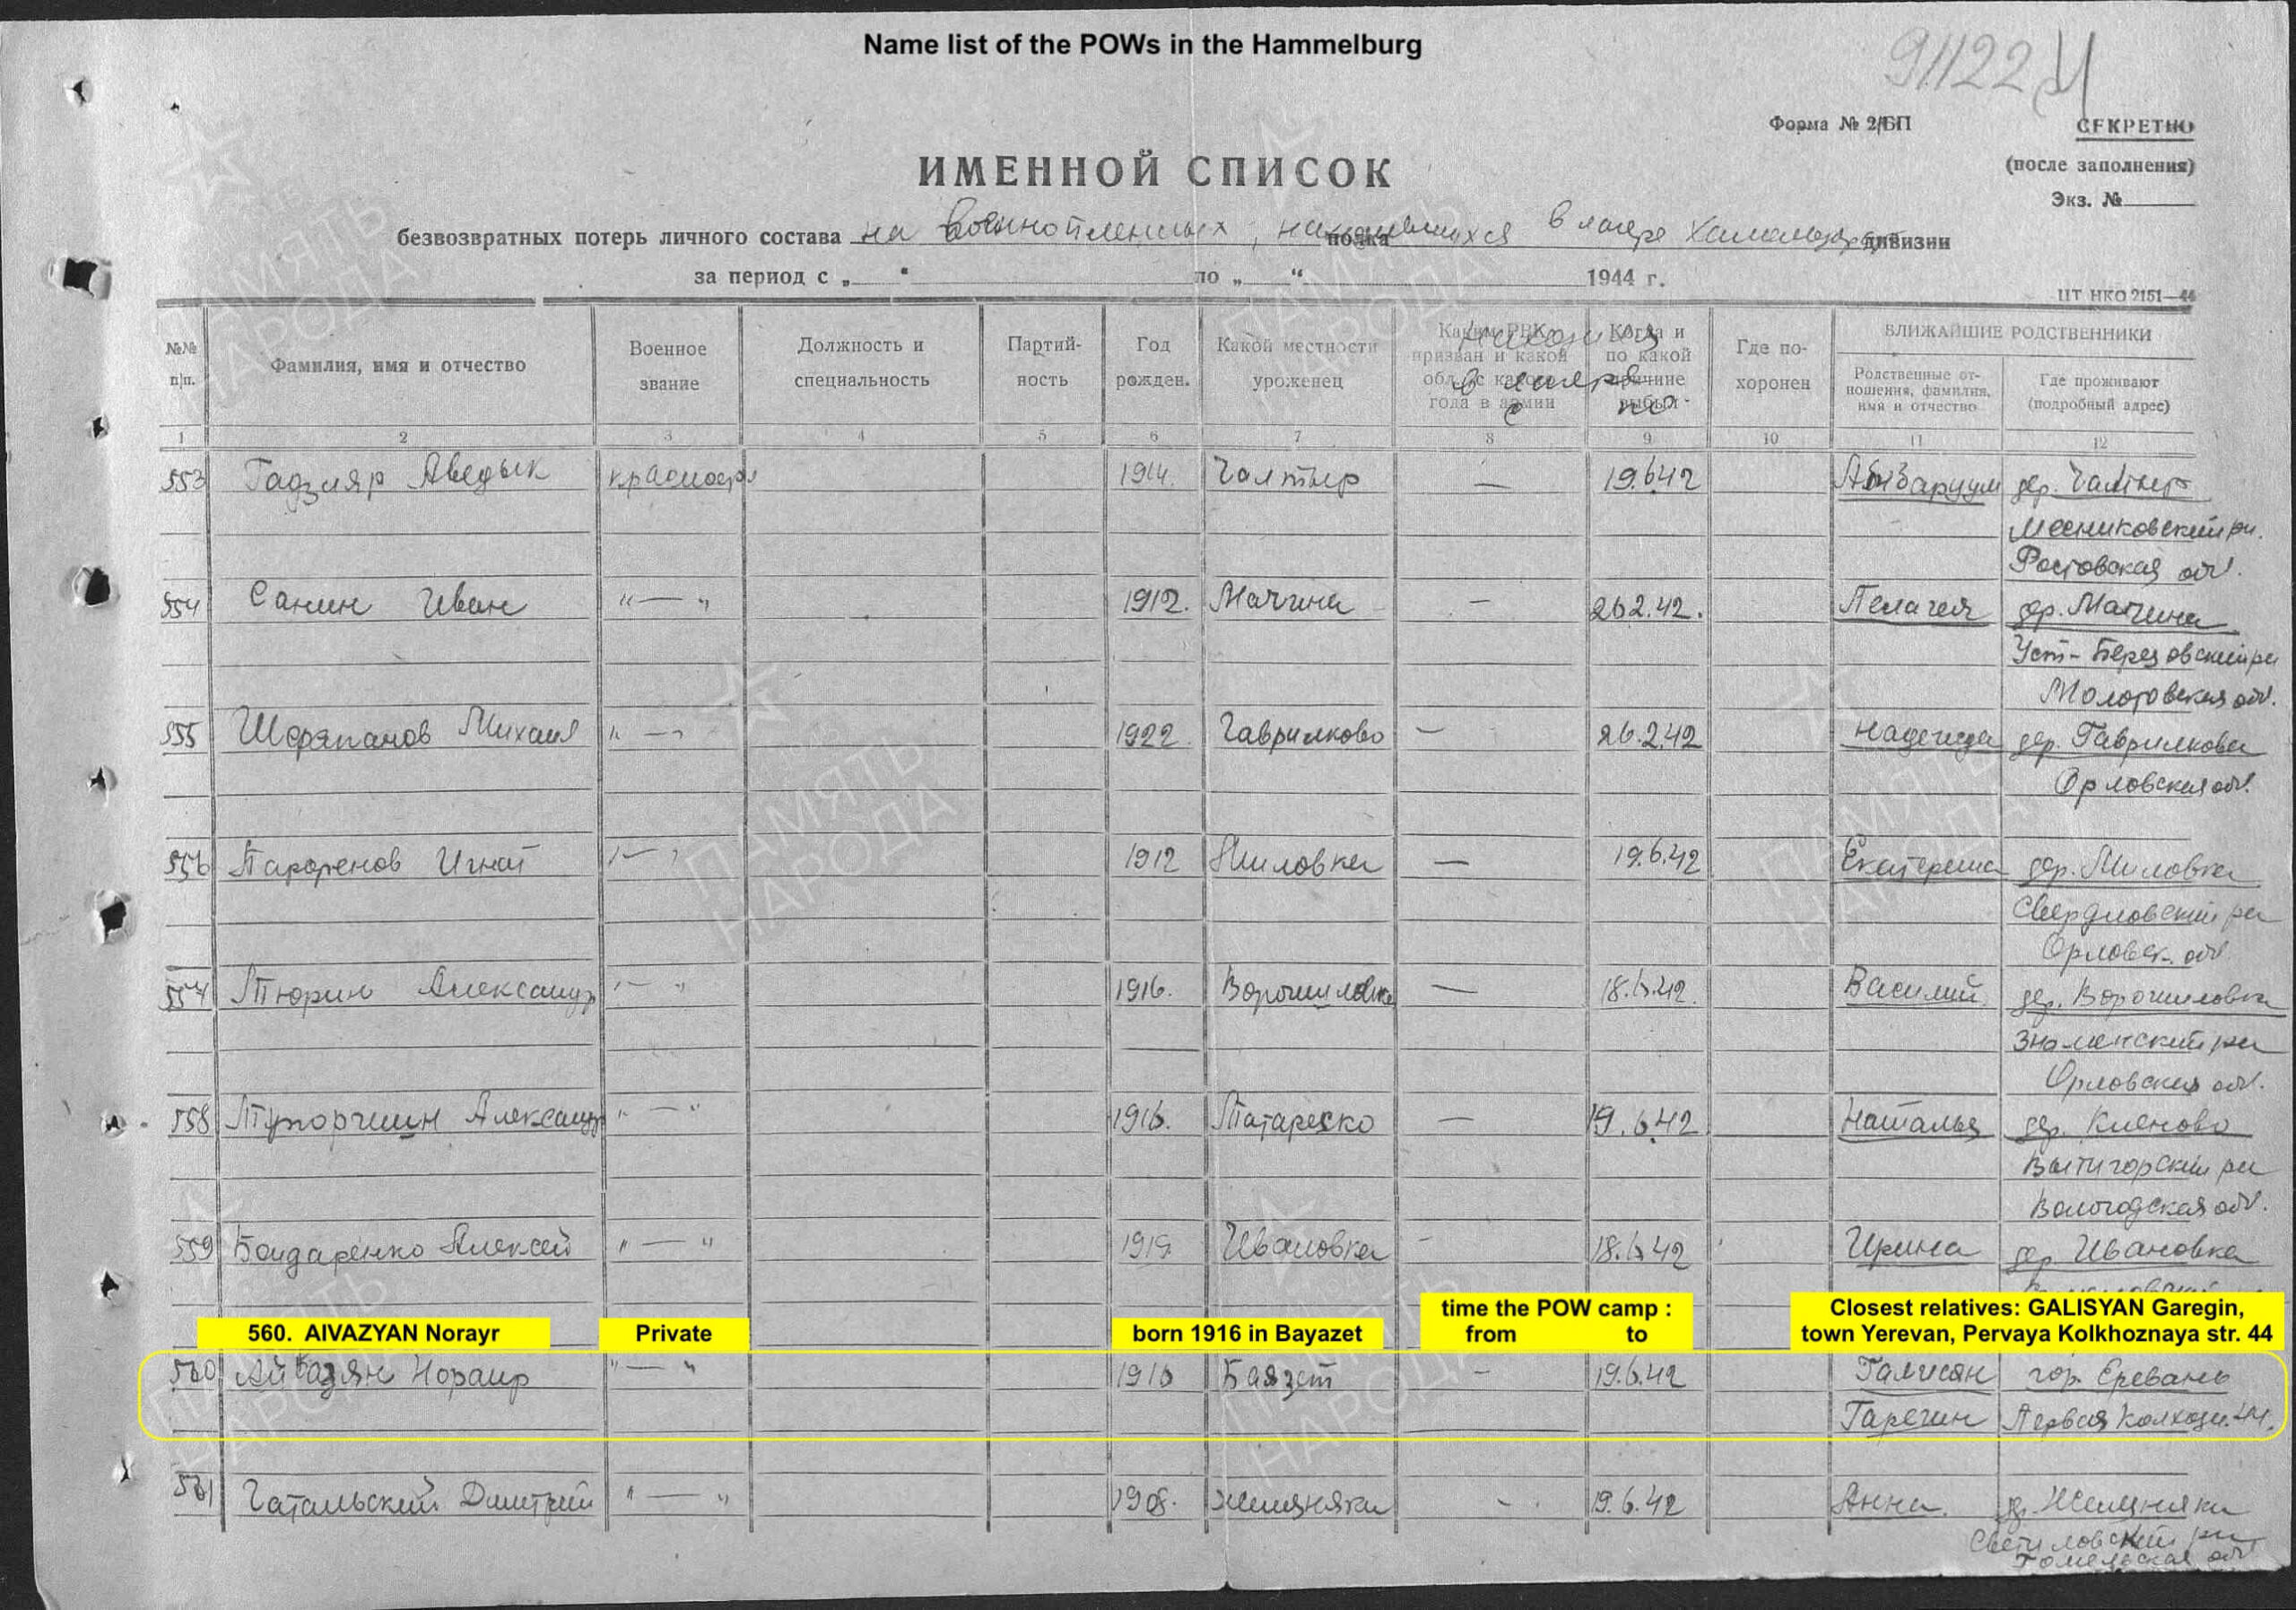 Name list of the POWs in the Hammelburg
91122
Форма № 2/БП
СЕКРЕТНО
(после заполнения)
Экз. №
ИМЕННОЙ СПИСОК
безвозвратных потерь личного состава на военнопленных, находившихся в лагере полка дивизии
за период с „ “ по „ “ 1944 г.
ЦТ НКО 2151—44
№№ п|п.
Фамилия, имя и отчество
Военное звание
Должность и специальность
Партий-ность
Год рожден.
Какой местности уроженец
Каким РВК призван и какой обл., с какого года в армии
Находился в лагере с по
Когда и по какой причине выбыл
Где по-хоронен
БЛИЖАЙШИЕ РОДСТВЕННИКИ
Родственные от-ношения, фамилия, имя и отчество
Где проживают (подробный адрес)
1 2 3 4 5 6 7 8 9 10 11 12
553 Гадзляр Аведык красноарм 1914. Чалтыр — 19.6.42 дер. Чалтыр
Мясниковский рн.
Ростовская обл.
554 Санин Иван "—" 1912. Мачина — 26.2.42. Пелагея др. Мачина
Уст-Березовский рн
Молотовская обл.
555 Михаил "—" 1922. Гаврилково — 26.2.42 Надежда дер. Гаврилково
Орловская обл.
556 Парфенов Игнат "—" 1912 Миловка — 19.6.42 Екатерина дер. Миловка
Свердловский рн
Орловск. обл.
557 Тюрин Александр "—" 1916. Ворошиловка — 18.6.42. Василий дер. Ворошиловка
Знаменский рн
Орловская обл.
558 Александр "—" 1916. — 19.6.42 Наталья дер. Кленово
Вытигорский рн
Вологодская обл.
559 Бондаренко Алексей "—" 1919. Ивановка — 18.6.42 Ирина др Ивановка
560. AIVAZYAN Norayr
Private
born 1916 in Bayazet
time the POW camp :
from to
Closest relatives: GALISYAN Garegin,
town Yerevan, Pervaya Kolkhoznaya str. 44
560 Айвазян Нораир "—" 1916 Баязет — 19.6.42 Галисян гор. Еревань
Гарегин Первая Колхозн. 44.
561 Чатальский Дмитрий "—" 1908. — 19.6.42 Анна.
Светиловский рн
Гомельская обл
ПАМЯТЬ
НАРОДА